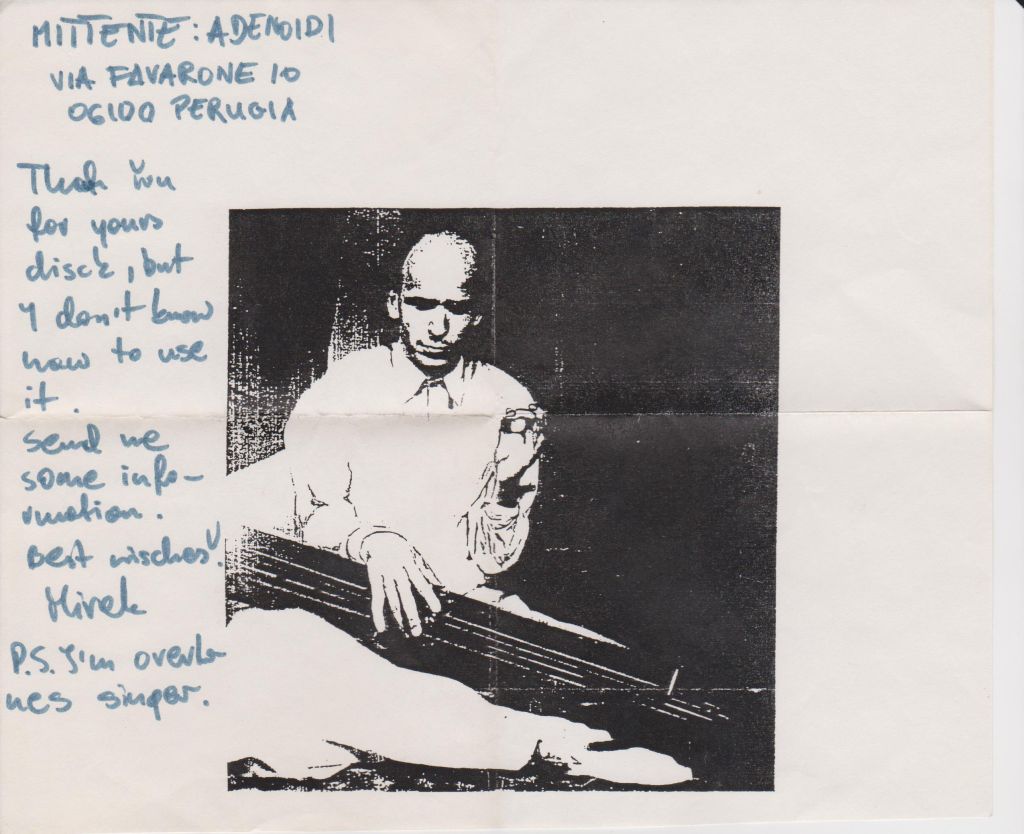 MITTENTE: ADENOIDI
VIA FAVARONE 10
06100 PERUGIA
Thak You
for yours
disck, but
I don't know
how to use
it.
send me
some info-
rmation.
Best wisches!
Mirek
P.S. I'm overto
nes singer.